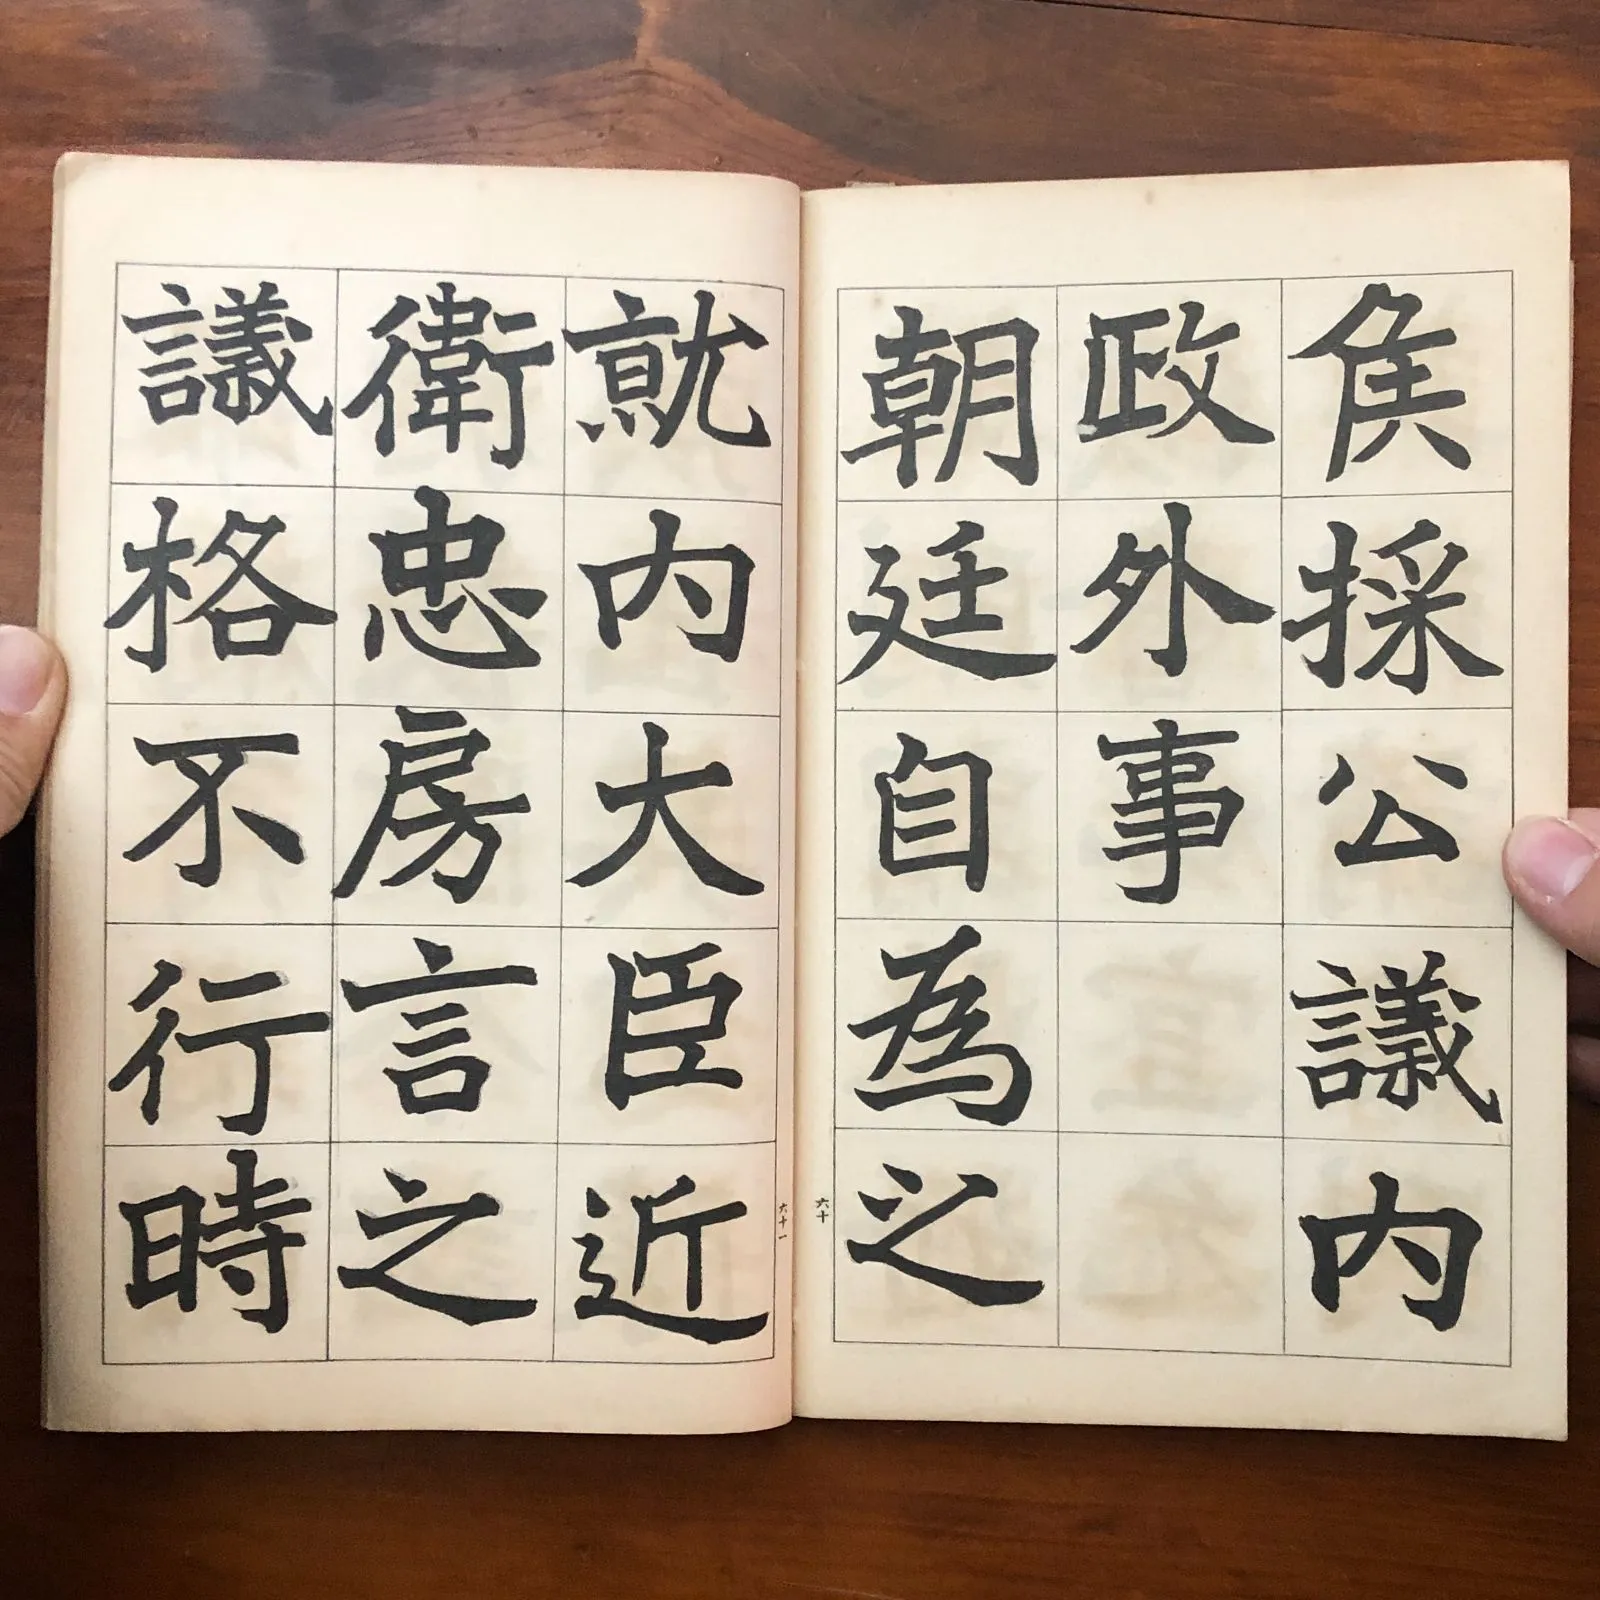 矦採公議内
政外事
朝廷自為之
六十
就内大臣近
衛忠房言之
議格不行時
六十一